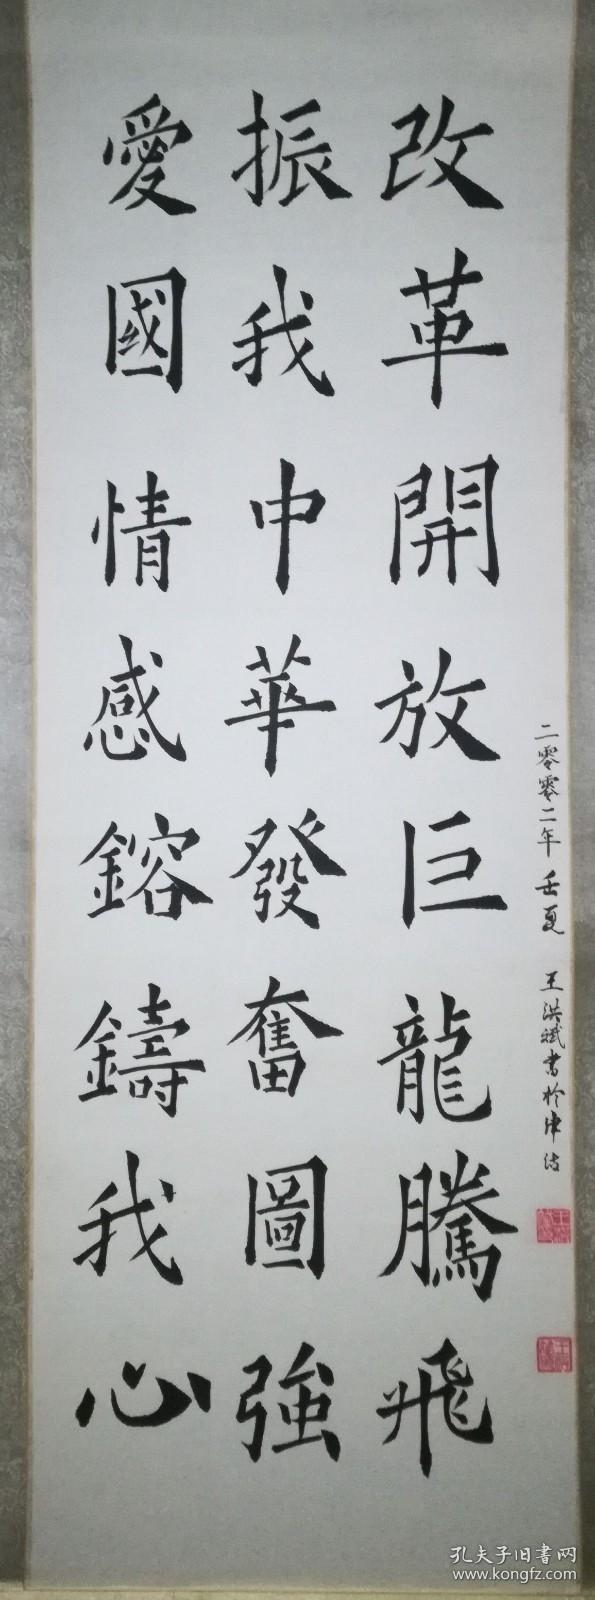 改革開放巨龍騰飛
振我中華發奮圖強
愛國情感鎔鑄我心
二零零二年壬夏 王洪斌書於津沽
孔夫子旧书网
www.kongfz.com